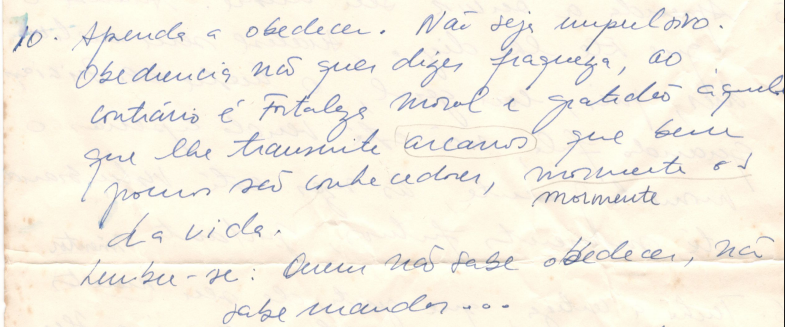 10. Aprenda a obedecer. Não seja impulsivo.
Obediencia não quer dizer fraqueza, ao
contrário é Fortaleza moral e gratidão àquele
que lhe transmite arcanos que bem
poucos são conhecedores, mormente os
mormente
da vida.
Lembre-se: Quem não sabe obedecer, não
sabe mandar...